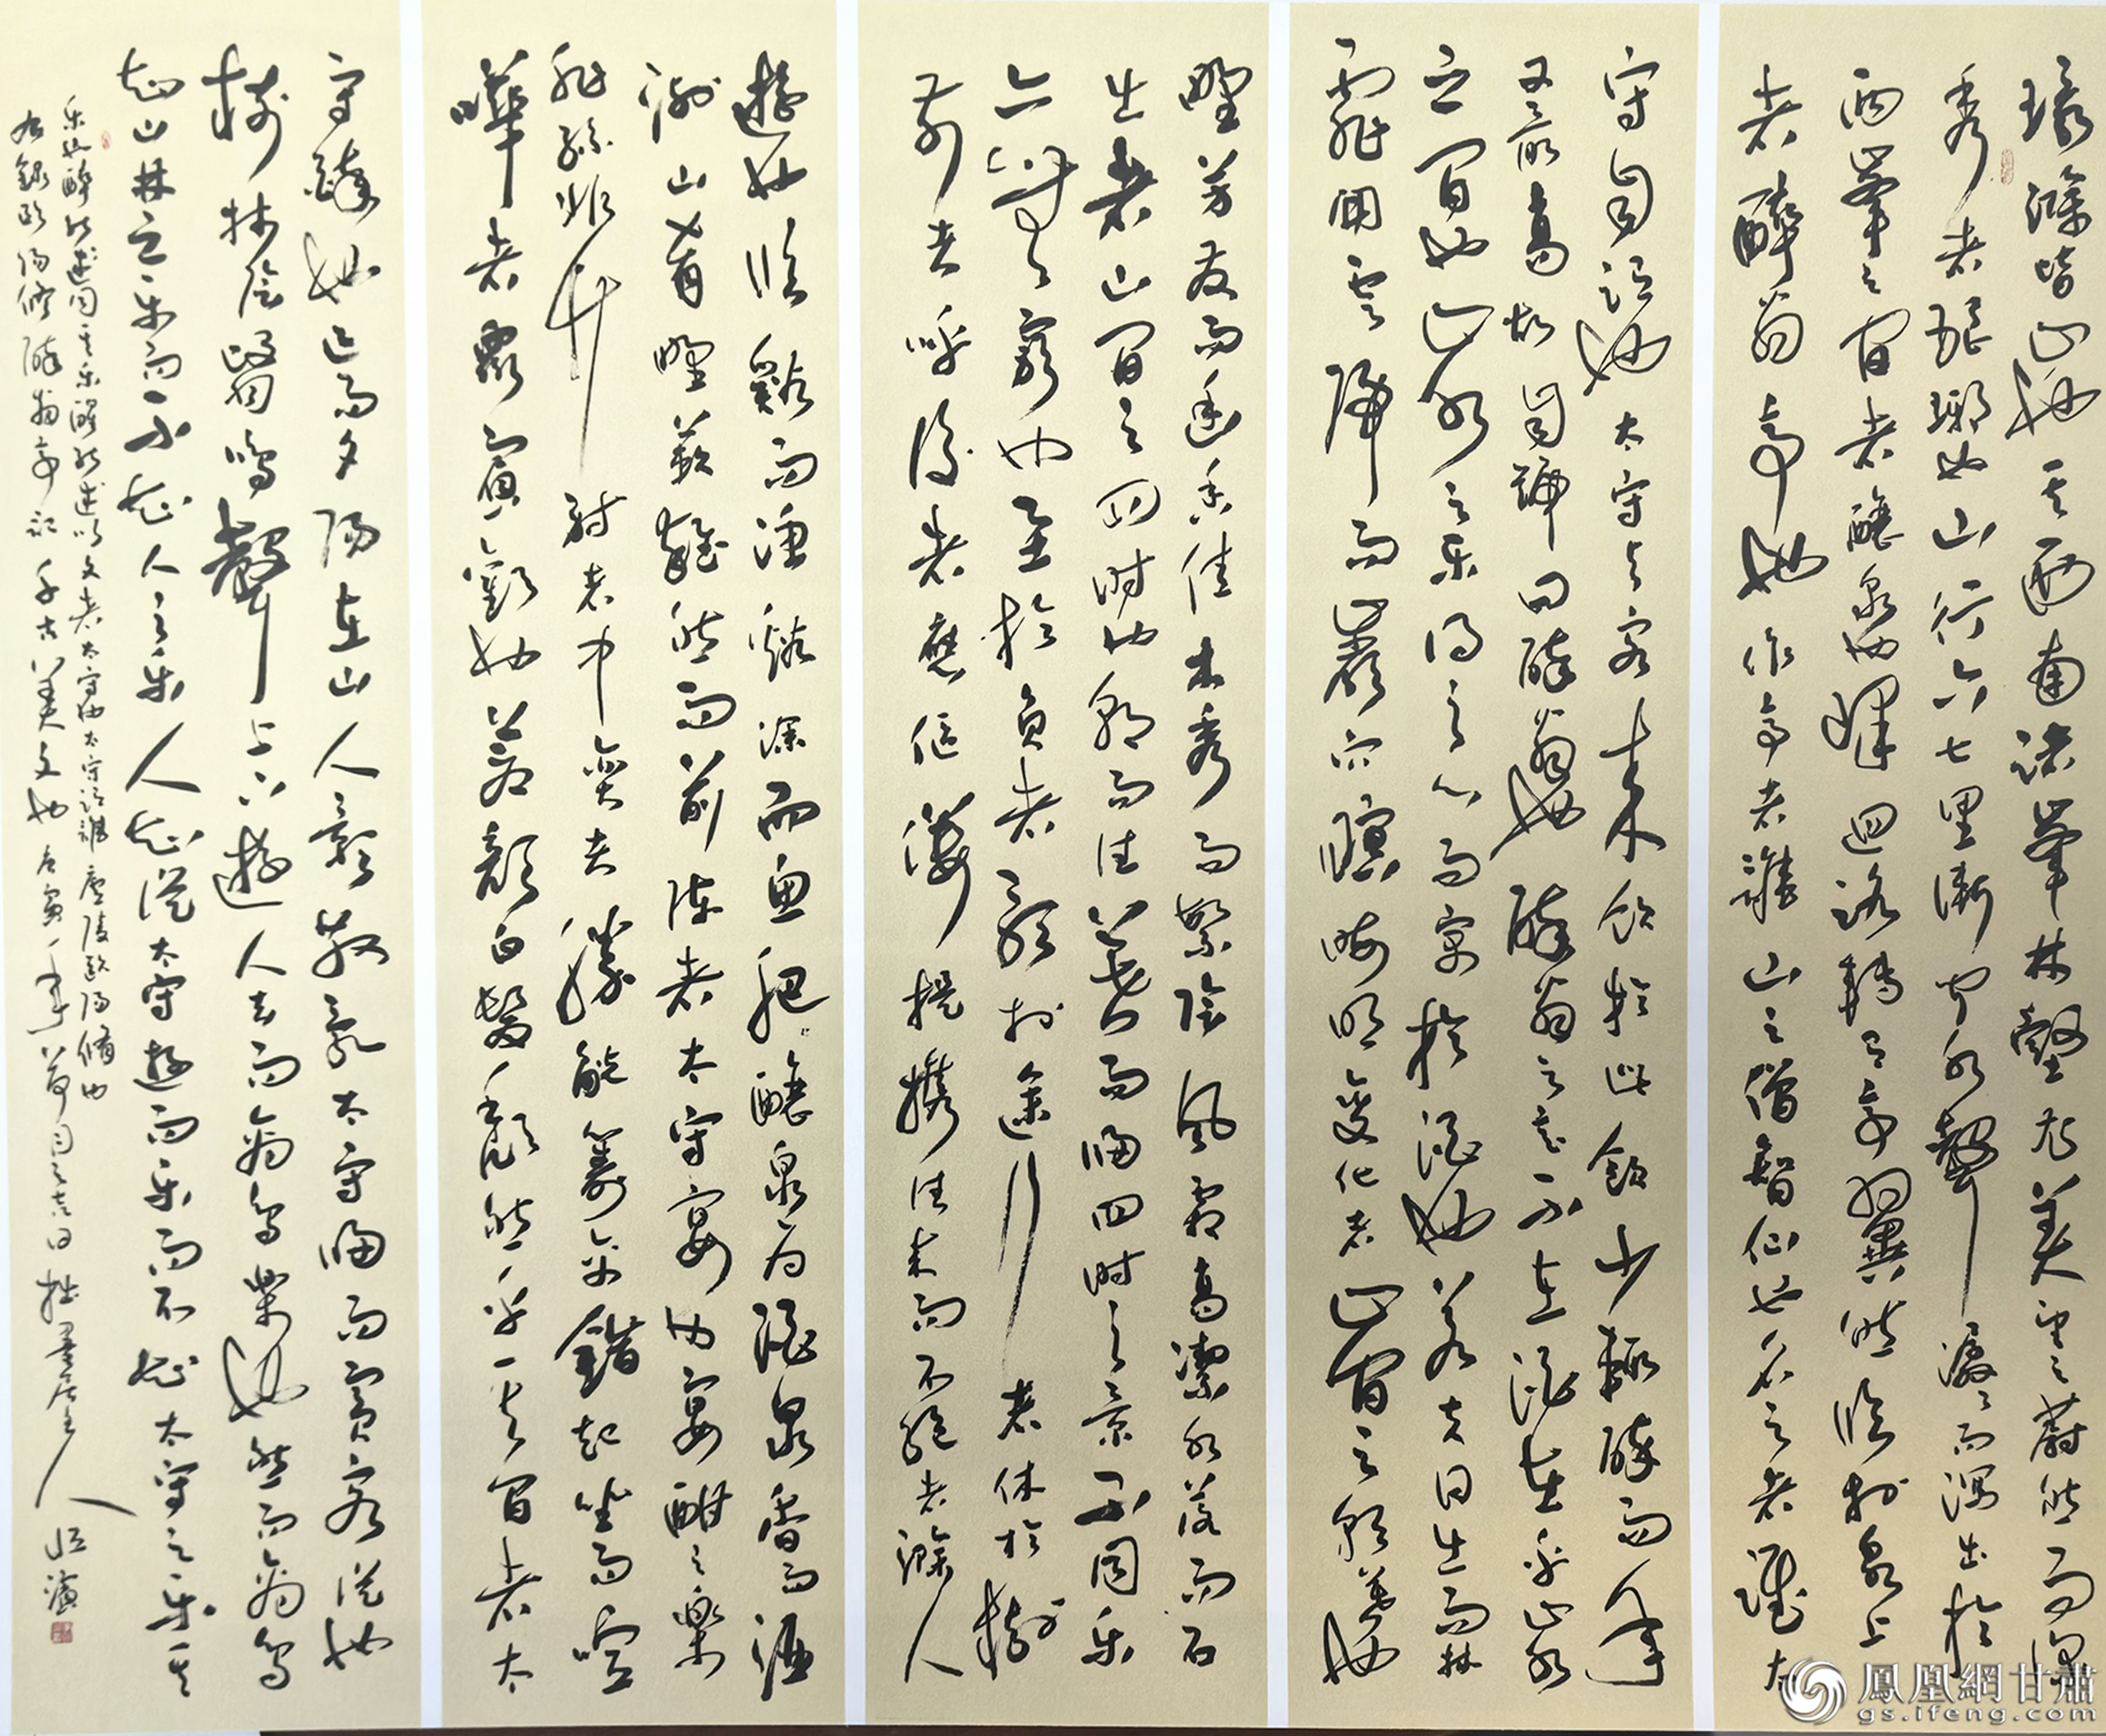 環滁皆山也其西南諸峯林壑尤美望之蔚然而深
秀者琅琊也山行六七里漸聞水聲潺々而瀉出於
兩峯之間者釀泉也峰回路轉有亭翼然臨於泉上
者醉翁亭也作亭者誰山之僧智仙也名之者誰太
守自謂也太守与客来飲於此飲少輒醉而年
又最高故自號曰醉翁也醉翁之意不在酒在乎山水
之間也山水之樂得之心而寓於酒也若夫日出而林
霏開雲歸而巖穴暝晦明變化者山間之朝暮也
野芳發而幽香佳木秀而繁陰風霜高潔水落而石
出者山間之四時也朝而往暮而歸四時之景不同樂
亦無窮也至於負者歌於途行者休於樹
前者呼後者應傴僂提攜往来而不絕者滁人
遊也臨谿而漁谿深而魚肥釀泉為酒泉香而酒
洌山肴野蔌雜然而前陳者太守宴也宴酣之樂
非絲非竹射者中奕者勝觥籌交錯起坐而喧
嘩者衆賓歡也蒼顏白髮頹然乎其間者太
守醉也已而夕陽在山人影散亂太守歸而賓客從也
樹林陰翳鳴聲上下遊人去而禽鳥樂也然而禽鳥
知山林之樂而不知人之樂人知從太守遊而樂而不知太守之樂其
樂也醉能述同其樂醒能述以文者太守也太守謂誰廬陵歐陽脩也
右錄歐陽修醉翁亭記千古美文也
鳳凰網甘肅
gs.ifeng.com